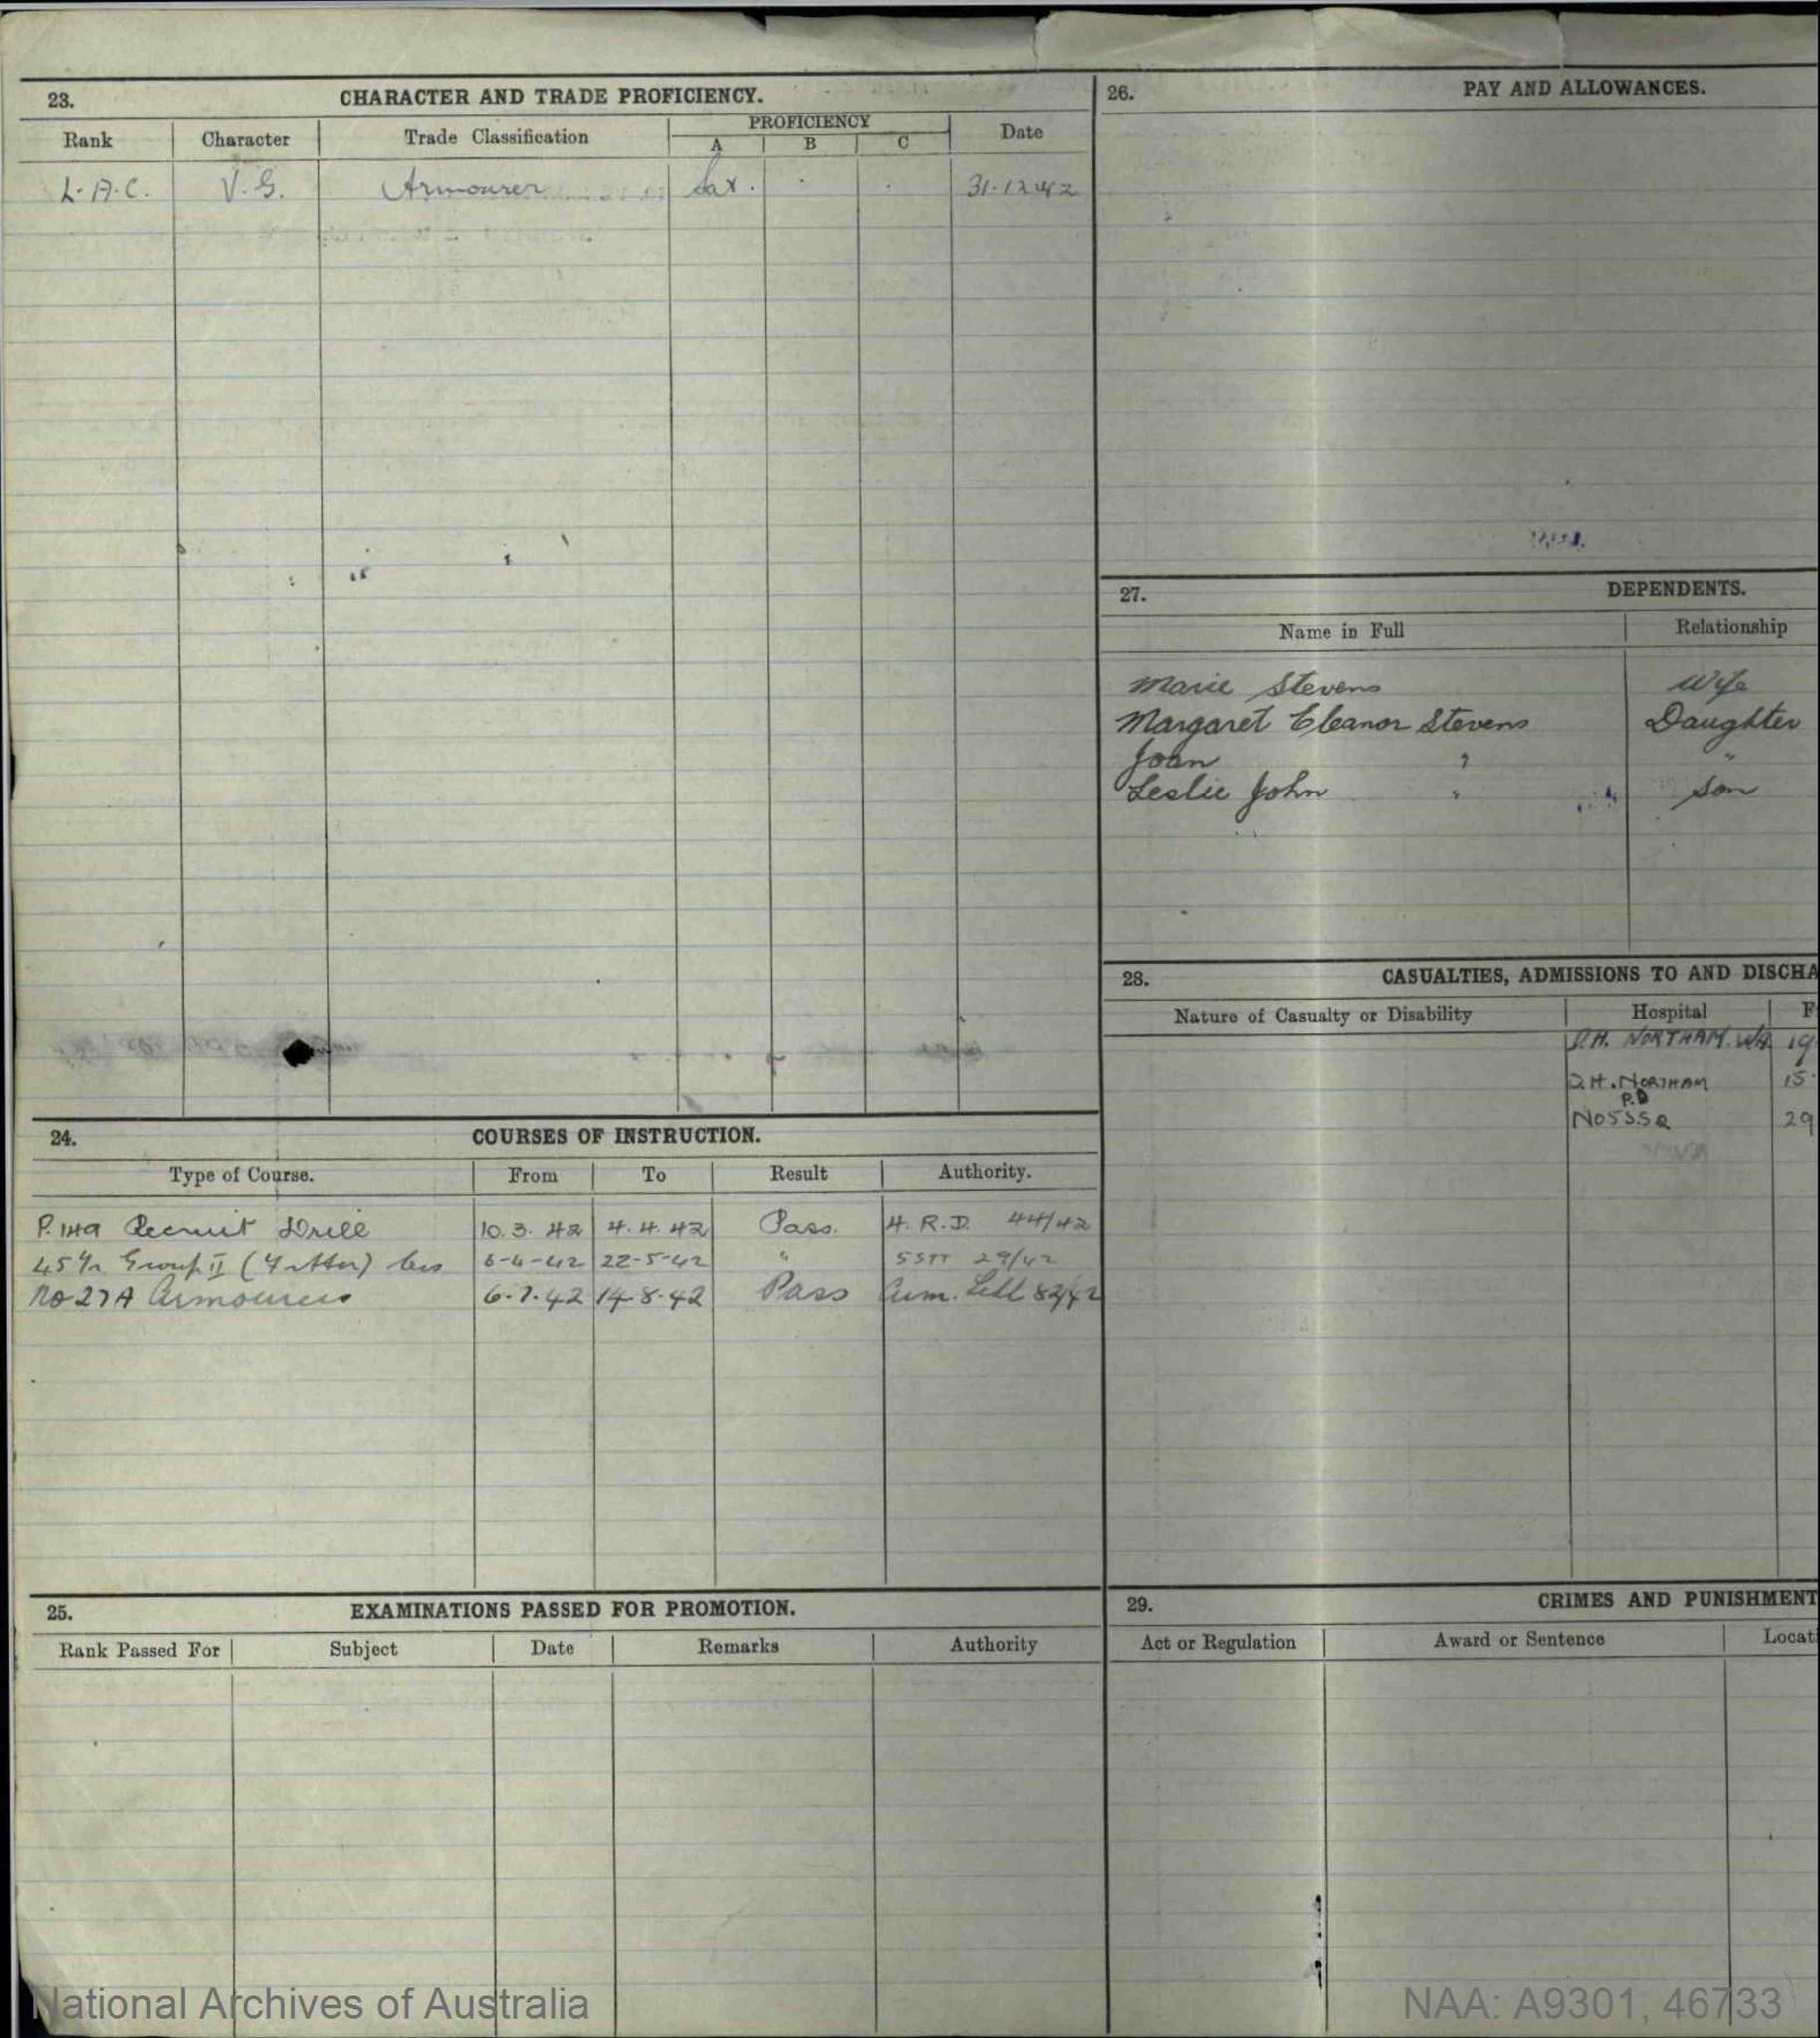 23. CHARACTER AND TRADE PROFICIENCY.
Rank Character Trade Classification PROFICIENCY Date
A B C
L.A.C. V.G. Armourer Sat. 31.12.42
24. COURSES OF INSTRUCTION.
Type of Course. From To Result Authority.
P.149 Recruit Drill 10.3.42 4.4.42 Pass. 4.R.D. 44/42
Group II (Fitter) 6-4-42 22-5-42 " 5STT 29/42
No 27A Armourers 6.7.42 14.8.42 Pass Arm. 82/42
25. EXAMINATIONS PASSED FOR PROMOTION.
Rank Passed For Subject Date Remarks Authority
26. PAY AND ALLOWANCES.
27. DEPENDENTS.
Name in Full Relationship
Marie Stevens Wife
Margaret Eleanor Stevens Daughter
Joan " "
Leslie John " Son
28. CASUALTIES, ADMISSIONS TO AND DISCHA
Nature of Casualty or Disability Hospital F
D.H. NORTHAM. WA. 19
D.H. NORTHAM 15
P.D
No5 S.S.Q 29
29. CRIMES AND PUNISHMENT
Act or Regulation Award or Sentence Locati
National Archives of Australia NAA: A9301, 46733